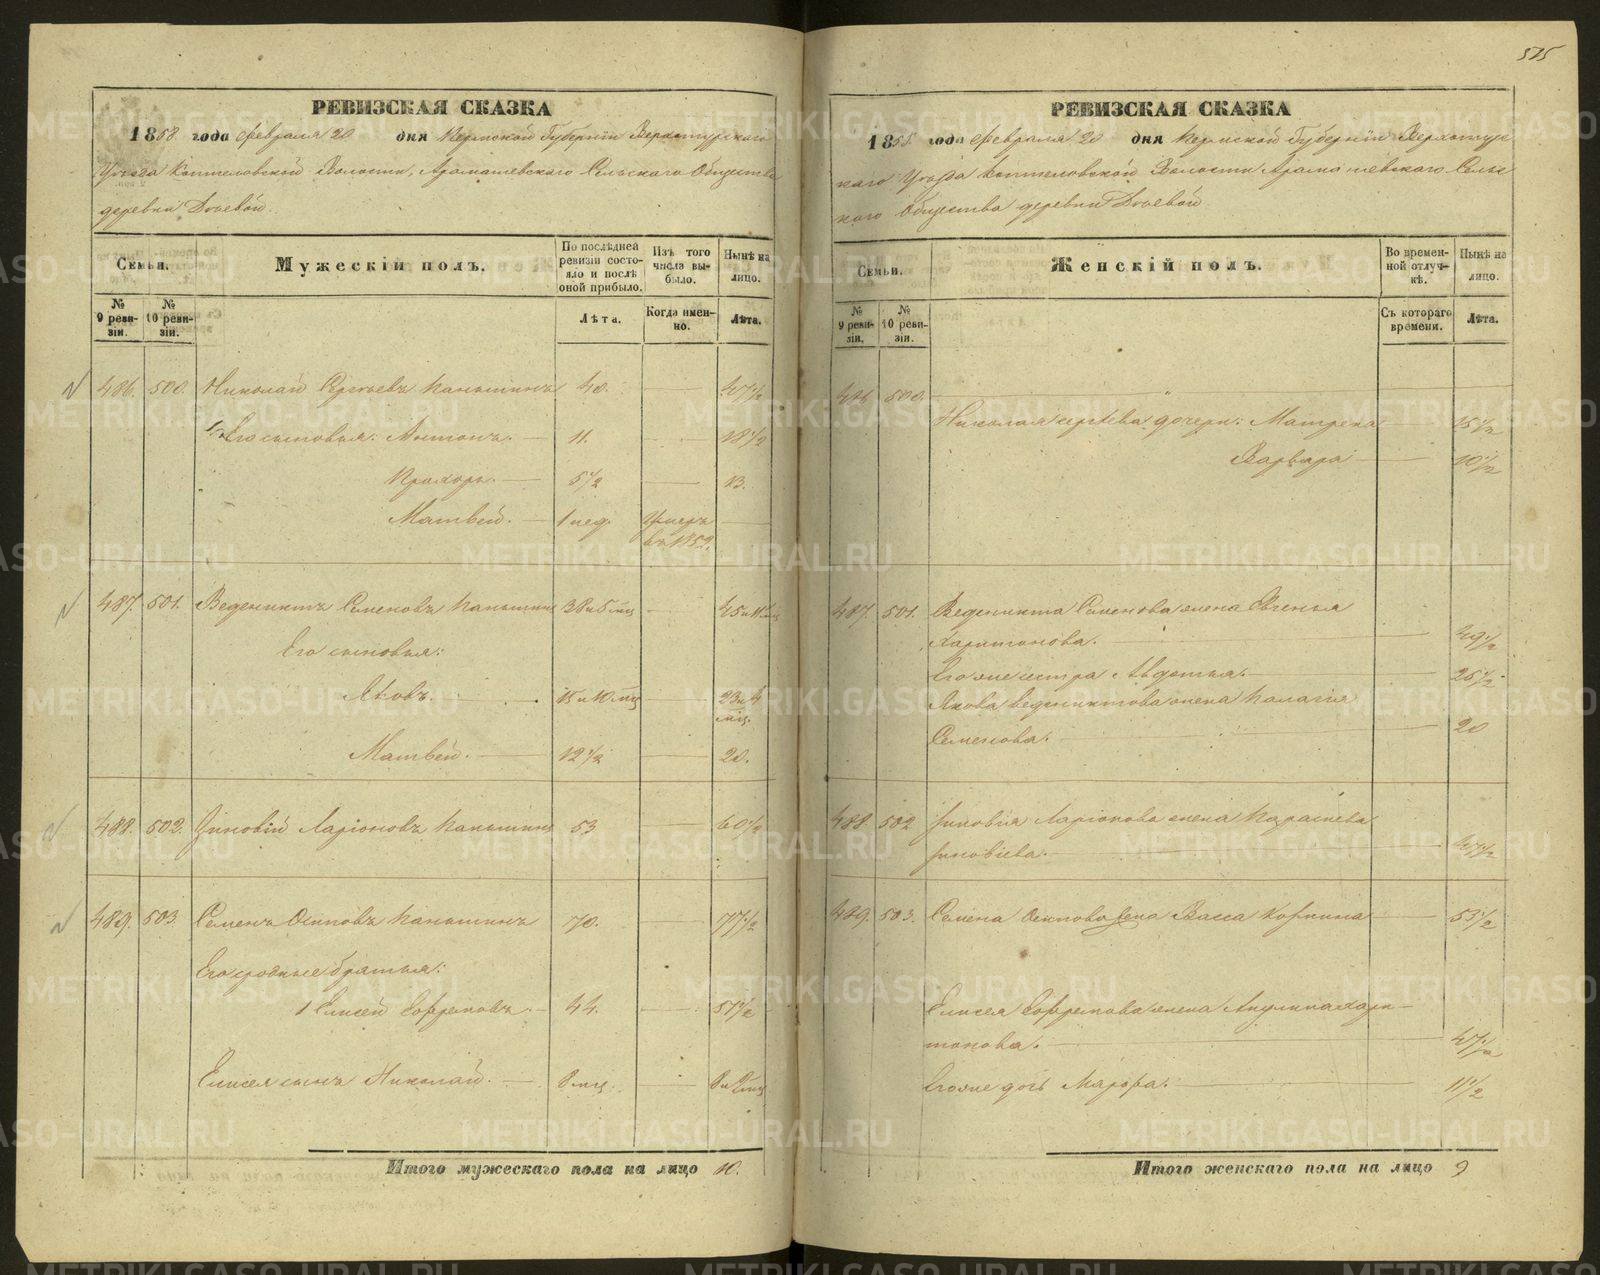 515
РЕВИЗСКАЯ СКАЗКА
1858 года февраля 20 дня Пермской Губернiи Верхотурскаго
Уѣзда Коптеловской Волости, Арамашевскаго Сельскаго Общества
деревни
Семьи.
Мужескій полъ.
По послѣдней ревизіи состояло и послѣ оной прибыло.
Изъ того числа выбыло.
Нынѣ на лицо.
№ 9 ревизіи.
№ 10 ревизіи.
Лѣта.
Когда именно.
Лѣта.
486. 500. Николай Сергѣевъ Паньшинъ 40. 47½
Его сыновья: Антонъ. 11. 18½
Прохоръ. 5½ 13.
Матвей. 1 нед. Умеръ
въ 1852.
487. 501. Веденихтъ Семеновъ Паньшинъ 38 и 5 мц 45 и 11 мц
Его сыновья:
Яковъ. 15 и 10 мц 23 и 4
мц.
Матвей. 12½ 20.
488. 502. Зиновій Ларіоновъ Паньшинъ 53 60½
489. 503. Семенъ Осиповъ Паньшинъ 70. 77½
Его родные братья:
1 Елисей Ефремовъ. 44. 51½
Елисея сынъ Николай. 8 мц.
Итого мужескаго пола на лицо 10.
РЕВИЗСКАЯ СКАЗКА
1858 года февраля 20 дня Пермской Губернiи Верхотурс
каго Уѣзда Коптеловской Волости Арамашевскаго Сельс
каго Общества деревни
Семьи.
Женскій полъ.
Во временной отлучкѣ.
Нынѣ на лицо.
№ 9 ревизіи.
№ 10 ревизіи.
Съ котораго времени.
Лѣта.
486 500.
Николая Сергѣева дочери: Матрена 15½
Варвара 10½
487. 501. Веденихта Семенова жена Евгенья
Харитонова. 49½
Его же сестра Авдотья. 25½
Якова Веденихтова жена Палагія
Семенова. 20
488 502 Зиновія Ларіонова жена
Зиновіева. 47½
489. 503. Семена Осипова жена Васса 53½
Елисея Ефремова жена Акулина Хари–
тонова. 47½
Его же дочь 11½
Итого женскаго пола на лицо 9
METRIKI.GASO-URAL.RU